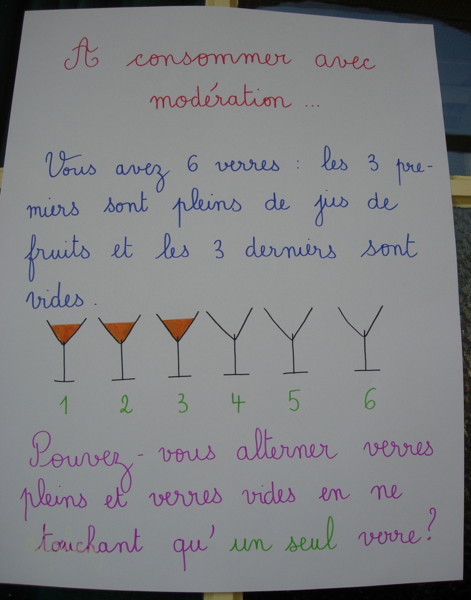 A consommer avec
modération ...
Vous avez 6 verres : les 3 pre-
miers sont pleins de jus de
fruits et les 3 derniers sont
vides.
1 2 3 4 5 6
Pouvez-vous alterner verres
pleins et verres vides en ne
touchant qu'un seul verre?